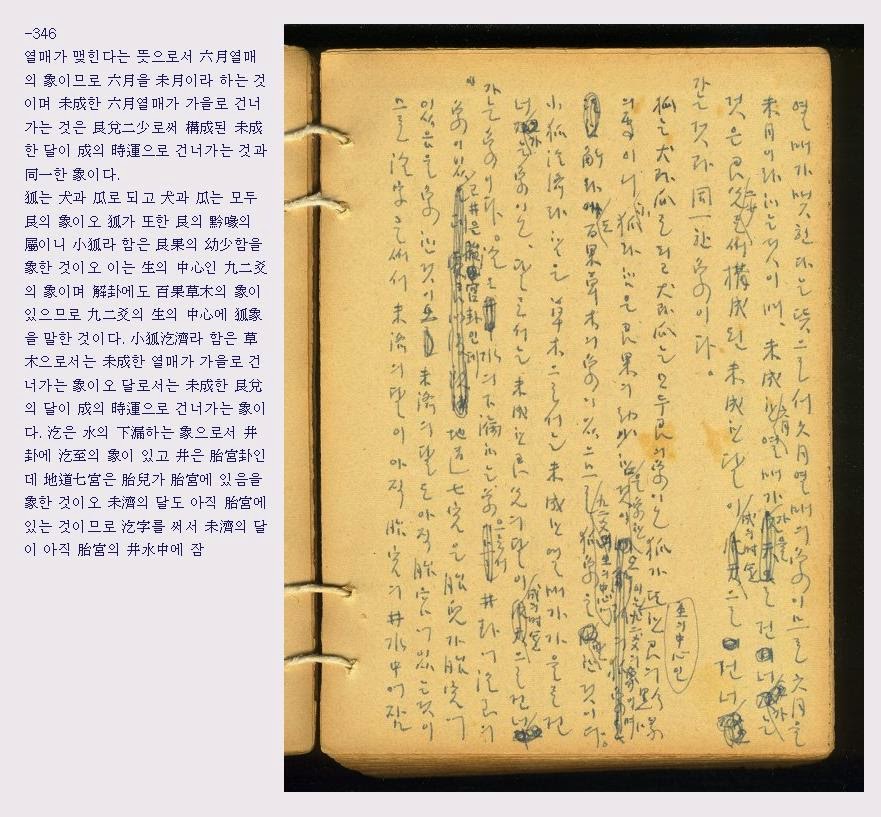 -346
열매가 맺힌다는 뜻으로서 六月열매
의 象이므로 六月을 未月이라 하는 것
이며 未成한 六月열매가 가을로 건너
가는 것은 艮兌二少로써 構成된 未成
한 달이 成의 時運으로 건너가는 것과
同一한 象이다.
狐는 犬과 瓜로 되고 犬과 瓜는 모두
艮의 象이오 狐가 또한 艮의 黔喙의
屬이니 小狐라 함은 艮果의 幼少함을
象한 것이오 이는 生의 中心인 九二爻
의 象이며 解卦에도 百果草木의 象이
있으므로 九二爻의 生의 中心에 狐象
을 말한 것이다. 小狐汔濟라 함은 草
木으로서는 未成한 열매가 가을로 건
너가는 象이오 달로서는 未成한 艮兌
의 달이 成의 時運으로 건너가는 象이
다. 汔은 水의 下漏하는 象으로서 井
卦에 汔至의 象이 있고 井은 胎宮卦인
데 地道七宮은 胎兒가 胎宮에 있음을
象한 것이오 未濟의 달도 아직 胎宮에
있는 것이므로 汔字를 써서 未濟의 달
이 아직 胎宮의 井水中에 잠
열매가 맺힌다는 뜻으로서 六月열매의 象이므로 六月을
未月이라 하는 것이며 未成한 六月열매가 가을로 건너가는
것은 艮兌二少로써 構成된 未成한 달이 成의 時運으로 건너
가는 것과 同一한 象이다.
狐는 犬과 瓜로 되고 犬과 瓜는 모두 艮의 象이오 狐가 또한 艮의 黔喙
의 屬이니 小狐라 함은 艮果의 幼少함을 象한 것이오 이는 九二爻의 象이며
生의 中心인
解卦에도 百果草木의 象이 있으므로 九二爻의 生의 中心에 狐象을 말한 것이다.
小狐汔濟라 함은 草木으로서는 未成한 열매가 가을로 건
너가는 象이오 달로서는 未成한 艮兌의 달이 成의 時運으로 건너
가는 象이다. 汔은 水의 下漏하는 象으로서 井卦에 汔至의
象이 있고 井은 胎宮卦인데 地道七宮은 胎兒가 胎宮에
있음을 象한 것이오 未濟의 달도 아직 胎宮에 있는 것이
므로 汔字를 써서 未濟의 달이 아직 胎宮의 井水中에 잠